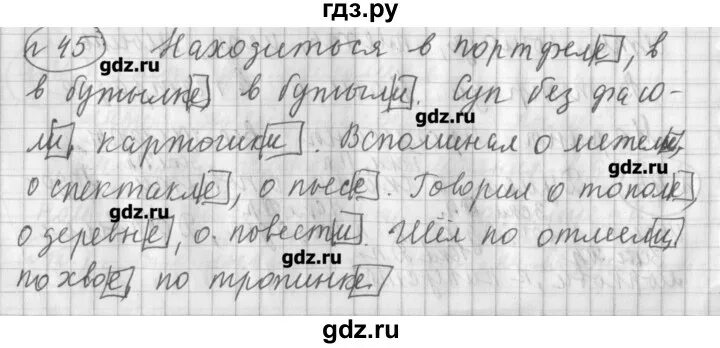 гдз.ру
п 45 Находиться в портфеле, в
gdz.ru gdz.ru
в бутылке, в бутыли. Суп без фасо-
ли, картошки. Вспоминал о метели,
gdz.ru gdz.ru
о спектакле, о пьесе. Говорил о тополе,
gdz.ru gdz.ru
о деревне, о повести. Шёл по отмели,
gdz.ru
по хвое, по тропинке,
gdz.ru
гдз.ру